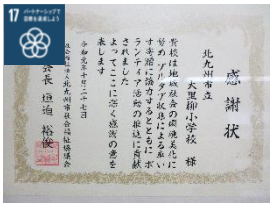 17 パートナーシップで
目標を達成しよう
感謝状
北九州市立
大里柳小学校 様
貴校は地域社会の環境美化に
努め プルタブ収集による車い
す寄贈に協力するとともに ボ
ランティア活動の推進に貢献
されました
よってここに深く感謝の意を
表します
令和元年十月二十七日
社会福祉法人 北九州市社会福祉協議会
会長 垣迫 裕俊